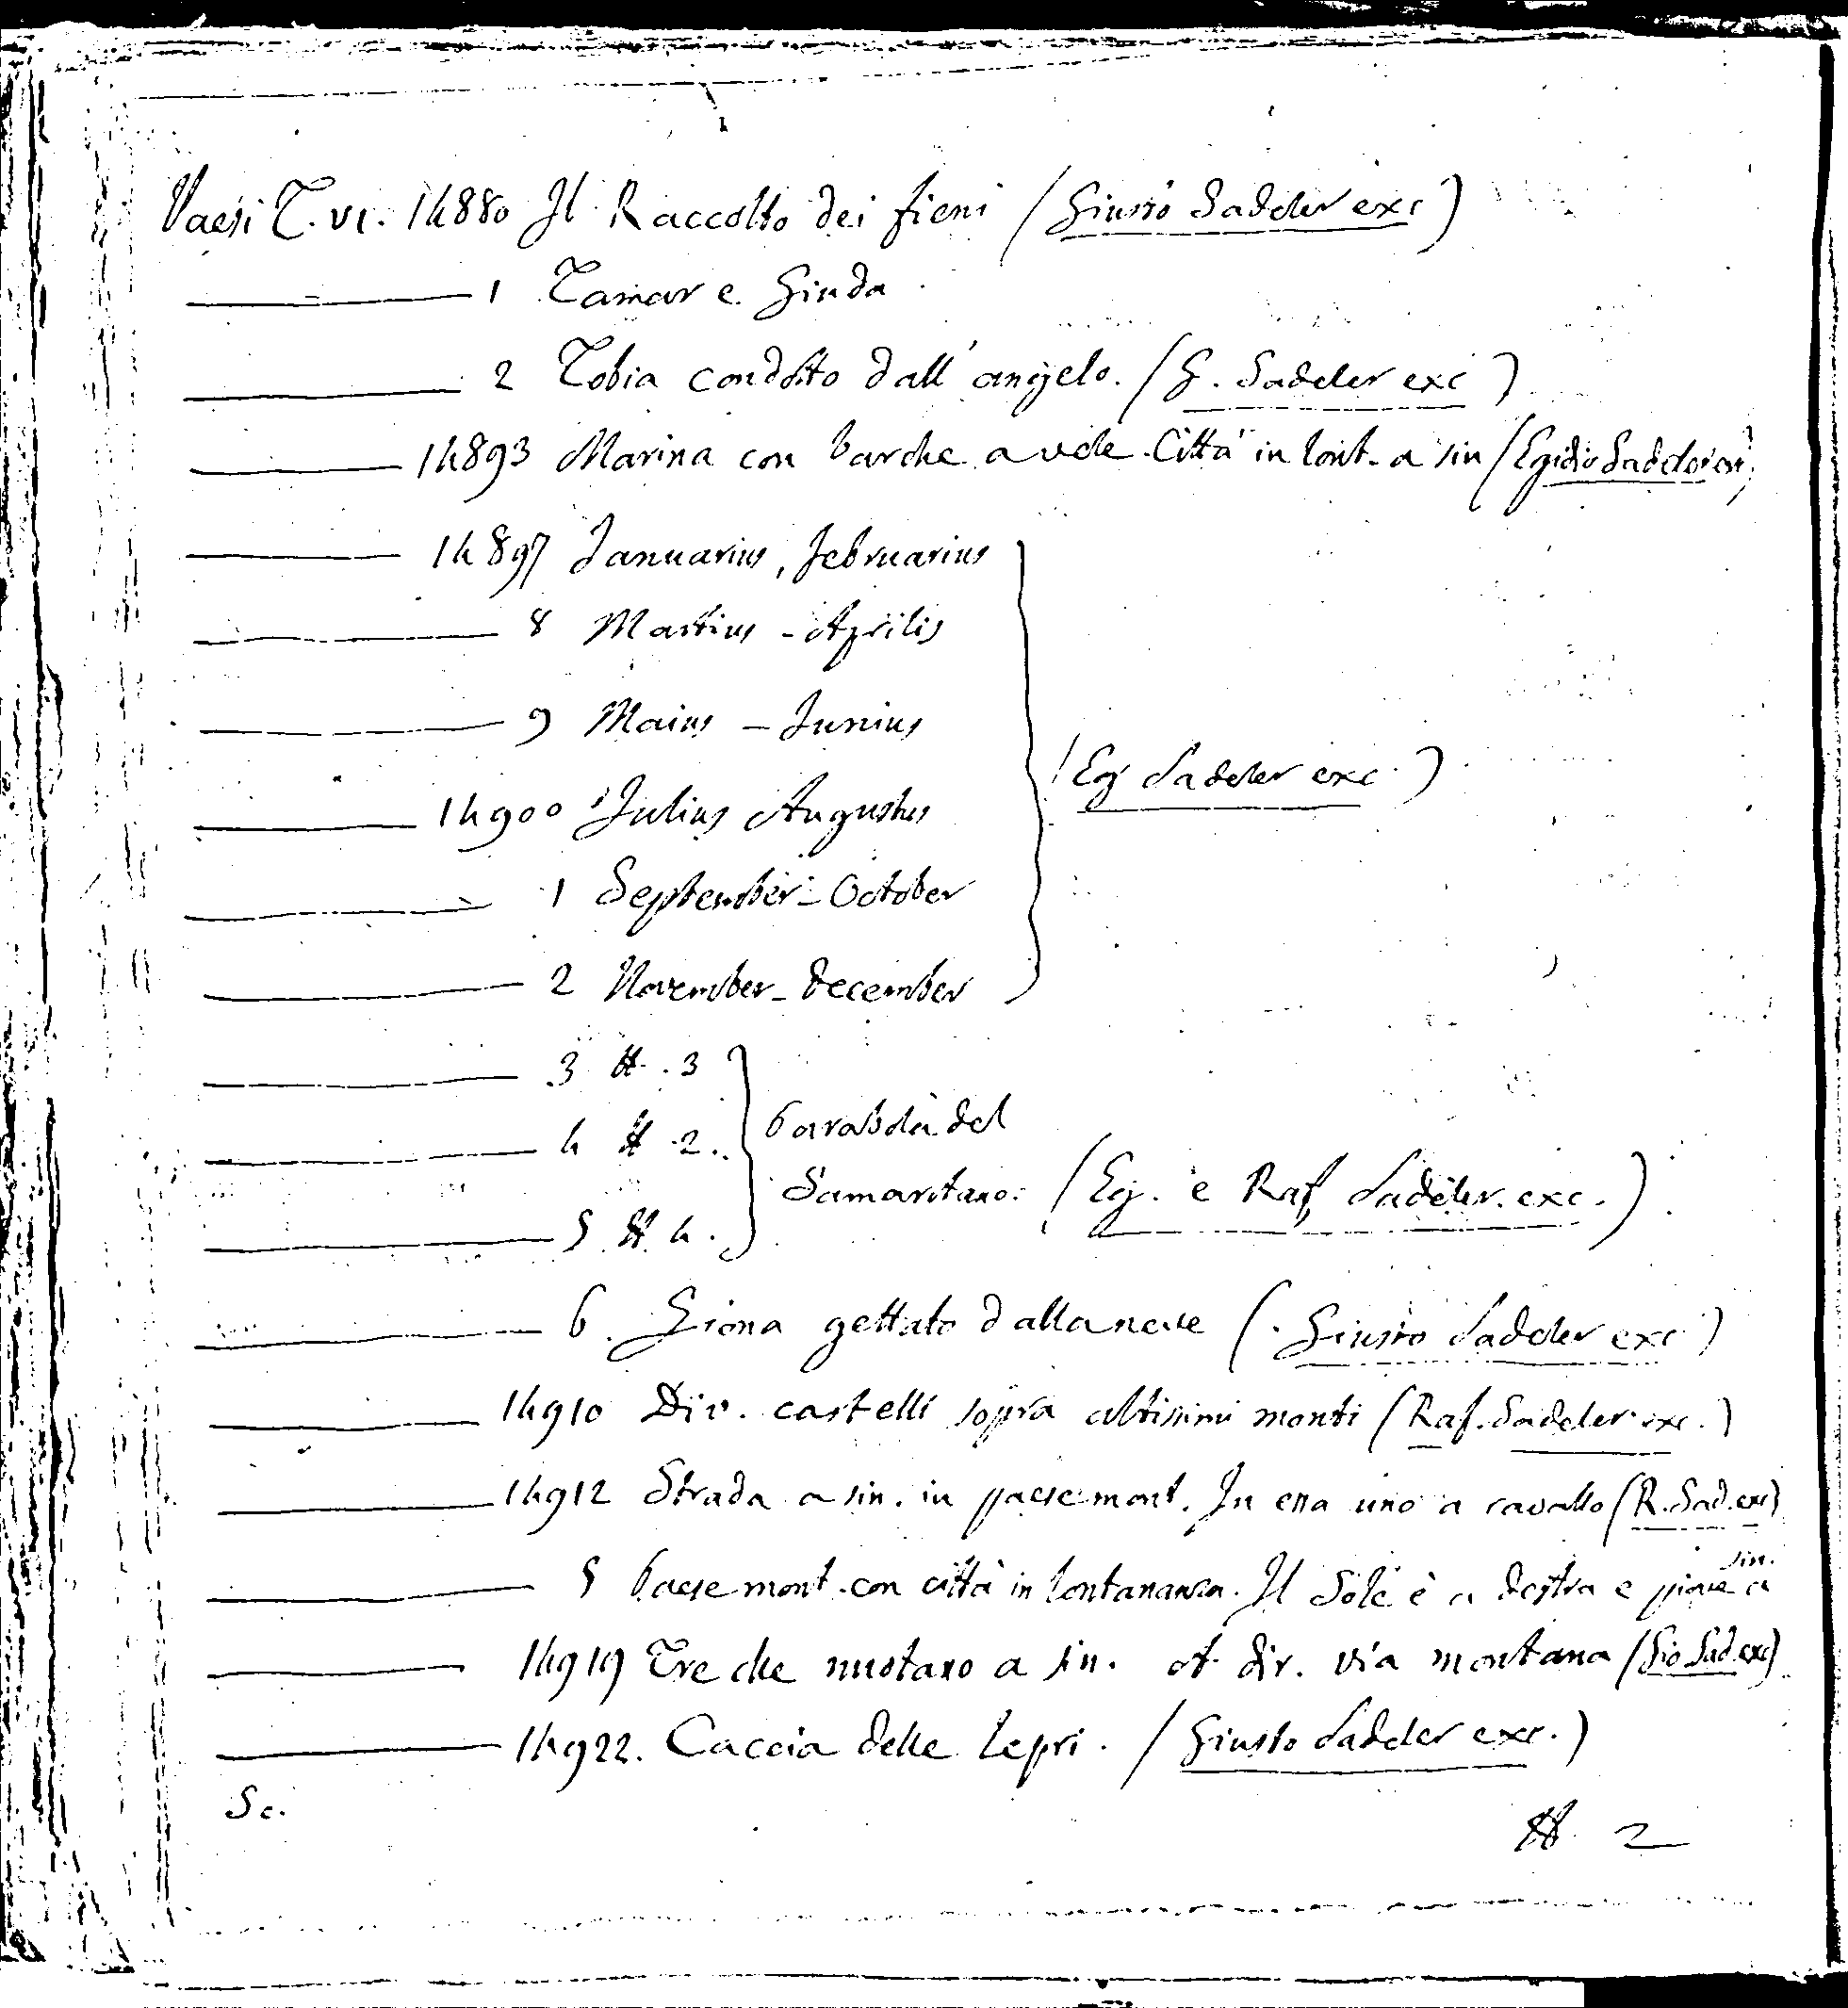 Paesi T. VI. 14880 Il Raccolto dei fieni (Giusto Sadeler exc)
1 Tamar e Giuda
2 Tobia condotto dall'angelo. (G. Sadeler exc)
14893 Marina con barche a vele. Città in lont. a sin (Egidio Sadeler exc)
14897 Januarius, februarius
8 Martius - Aprilis
9 Maius - Junius
(Eg Sadeler exc.)
14900 Julius Augustus
1 September - October
2 November - December
3 N. 3
4 N. 2.
Parabola del
Samaritano. (Eg. e Raf Sadeler. exc.)
5 N. 4.
6. Giona gettato dalla nave (Giusto Sadeler exc)
14910 Div. castelli sopra altissimi monti (Raf. Sadeler exc.)
14912 Strada a sin. in paese mont. In essa uno a cavallo (R. Sad. exc)
5 Paese mont. con città in lontananza. Il Sole è a destra e piove a sin.
14919 Tre che nuotano a sin. et dir. via montana (Gio Sad. exc)
14922. Caccia delle lepri. (Giusto Sadeler exc.)
Sc.
N. 2